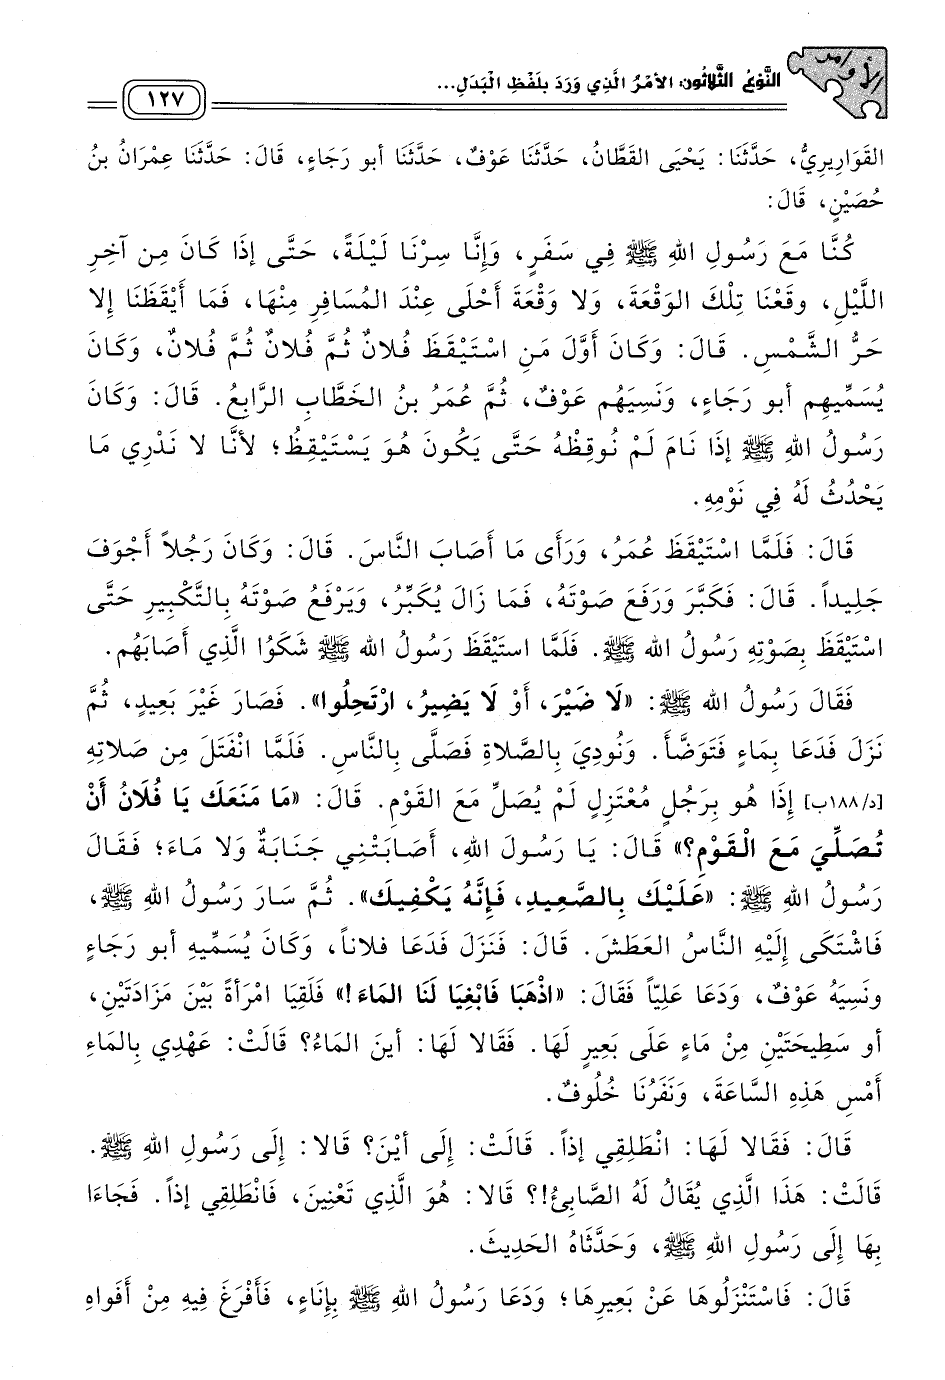 الأوامر
النَّوْعُ الثَّلَاثُون: الأَمْرُ الَّذِي وَرَدَ بلَفْظِ الْبَدَلِ...
١٢٧
القَوَارِيرِيُّ، حَدَّثَنَا: يَحْيَى القَطَّانُ، حَدَّثَنَا عَوْفٌ، حَدَّثَنَا أبو رَجَاءٍ، قَالَ: حَدَّثَنَا عِمْرَانُ بنُ
حُصَيْنٍ، قَالَ:
كُنَّا مَعَ رَسُولِ اللهِ ﷺ فِي سَفَرٍ، وَإِنَّا سِرْنَا لَيْلَةً، حَتَّى إذَا كَانَ مِن آخِرِ
اللَّيْلِ، وقَعْنَا تِلْكَ الوَقْعَةَ، وَلا وَقْعَةَ أَحْلَى عِنْدَ المُسَافِرِ مِنْهَا، فَمَا أَيْقَظَنَا إلا
حَرُّ الشَّمْسِ. قَالَ: وَكَانَ أَوَّلَ مَنِ اسْتَيْقَظَ فُلانٌ ثُمَّ فُلانٌ ثُمَّ فُلانٌ، وَكَانَ
يُسَمِّيهِم أبو رَجَاءٍ، وَنَسِيَهُم عَوْفٌ، ثُمَّ عُمَرُ بنُ الخَطَّابِ الرَّابِعُ. قَالَ: وَكَانَ
رَسُولُ اللهِ ﷺ إذَا نَامَ لَمْ نُوقِظْهُ حَتَّى يَكُونَ هُوَ يَسْتَيْقِظُ؛ لأنَّا لا نَدْرِي مَا
يَحْدُثُ لَهُ فِي نَوْمِهِ.
قَالَ: فَلَمَّا اسْتَيْقَظَ عُمَرُ، وَرَأَى مَا أَصَابَ النَّاسَ. قَالَ: وَكَانَ رَجُلاً أَجْوَفَ
جَلِيداً. قَالَ: فَكَبَّرَ وَرَفَعَ صَوْتَهُ، فَمَا زَالَ يُكَبِّرُ، وَيَرْفَعُ صَوْتَهُ بِالتَّكْبِيرِ حَتَّى
اسْتَيْقَظَ بِصَوْتِهِ رَسُولُ الله ﷺ. فَلَمَّا استَيْقَظَ رَسُولُ الله ﷺ شَكَوُا الَّذِي أَصَابَهُم.
فَقَالَ رَسُولُ الله ﷺ: «لَا ضَيْرَ، أَوْ لَا يَضِيرُ، ارْتَحِلُوا». فَصَارَ غَيْرَ بَعِيدٍ، ثُمَّ
نَزَلَ فَدَعَا بِمَاءٍ فَتَوَضَّأَ. وَنُودِيَ بِالصَّلاةِ فَصَلَّى بِالنَّاسِ. فَلَمَّا انْفَتَلَ مِن صَلاتِهِ
[د/١٨٨ب] إذَا هُو بِرَجُلٍ مُعْتَزِلٍ لَمْ يُصَلِّ مَعَ القَوْمِ. قَالَ: «مَا مَنَعَكَ يَا فُلَانُ أَنْ
تُصَلِّيَ مَعَ الْقَوْمِ؟» قَالَ: يَا رَسُولَ اللهِ، أَصَابَتْنِي جَنَابَةٌ وَلا مَاءَ؛ فَقَالَ
رَسُولُ اللهِ ﷺ: «عَلَيْكَ بِالصَّعِيدِ، فَإِنَّهُ يَكْفِيكَ». ثُمَّ سَارَ رَسُولُ اللهِ ﷺ،
فَاشْتَكَى إِلَيْهِ النَّاسُ العَطَشَ. قَالَ: فَنَزَلَ فَدَعَا فلاناً، وَكَانَ يُسَمِّيهِ أبو رَجَاءٍ
ونَسِيَهُ عَوْفٌ، وَدَعَا عَلِيّاً فَقَالَ: «اذْهَبَا فَابْغِيَا لَنَا المَاءَ!» فَلَقِيَا امْرَأةً بَيْنَ مَزَادَتَيْنِ،
أو سَطِيحَتَيْنِ مِنْ مَاءٍ عَلَى بَعِيرٍ لَهَا. فَقَالا لَهَا: أينَ المَاءُ؟ قَالَتْ: عَهْدِي بِالمَاءِ
أَمْسِ هَذِهِ السَّاعَةَ، وَنَفَرُنَا خُلُوفٌ.
قَالَ: فَقَالا لَهَا: انْطَلِقِي إذاً. قَالَتْ: إِلَى أَيْنَ؟ قَالا: إِلَى رَسُولِ اللهِ ﷺ.
قَالَتْ: هَذَا الَّذِي يُقَالُ لَهُ الصَّابِئُ!؟ قَالا: هُوَ الَّذِي تَعْنِينَ، فَانْطَلِقِي إذاً. فَجَاءَا
بِهَا إِلَى رَسُولِ اللهِ ﷺ، وَحَدَّثَاهُ الحَدِيثَ.
قَالَ: فَاسْتَنْزَلُوهَا عَنْ بَعِيرِهَا؛ وَدَعَا رَسُولُ اللهِ ﷺ بِإِنَاءٍ، فَأَفْرَغَ فِيهِ مِنْ أَفَواهِ